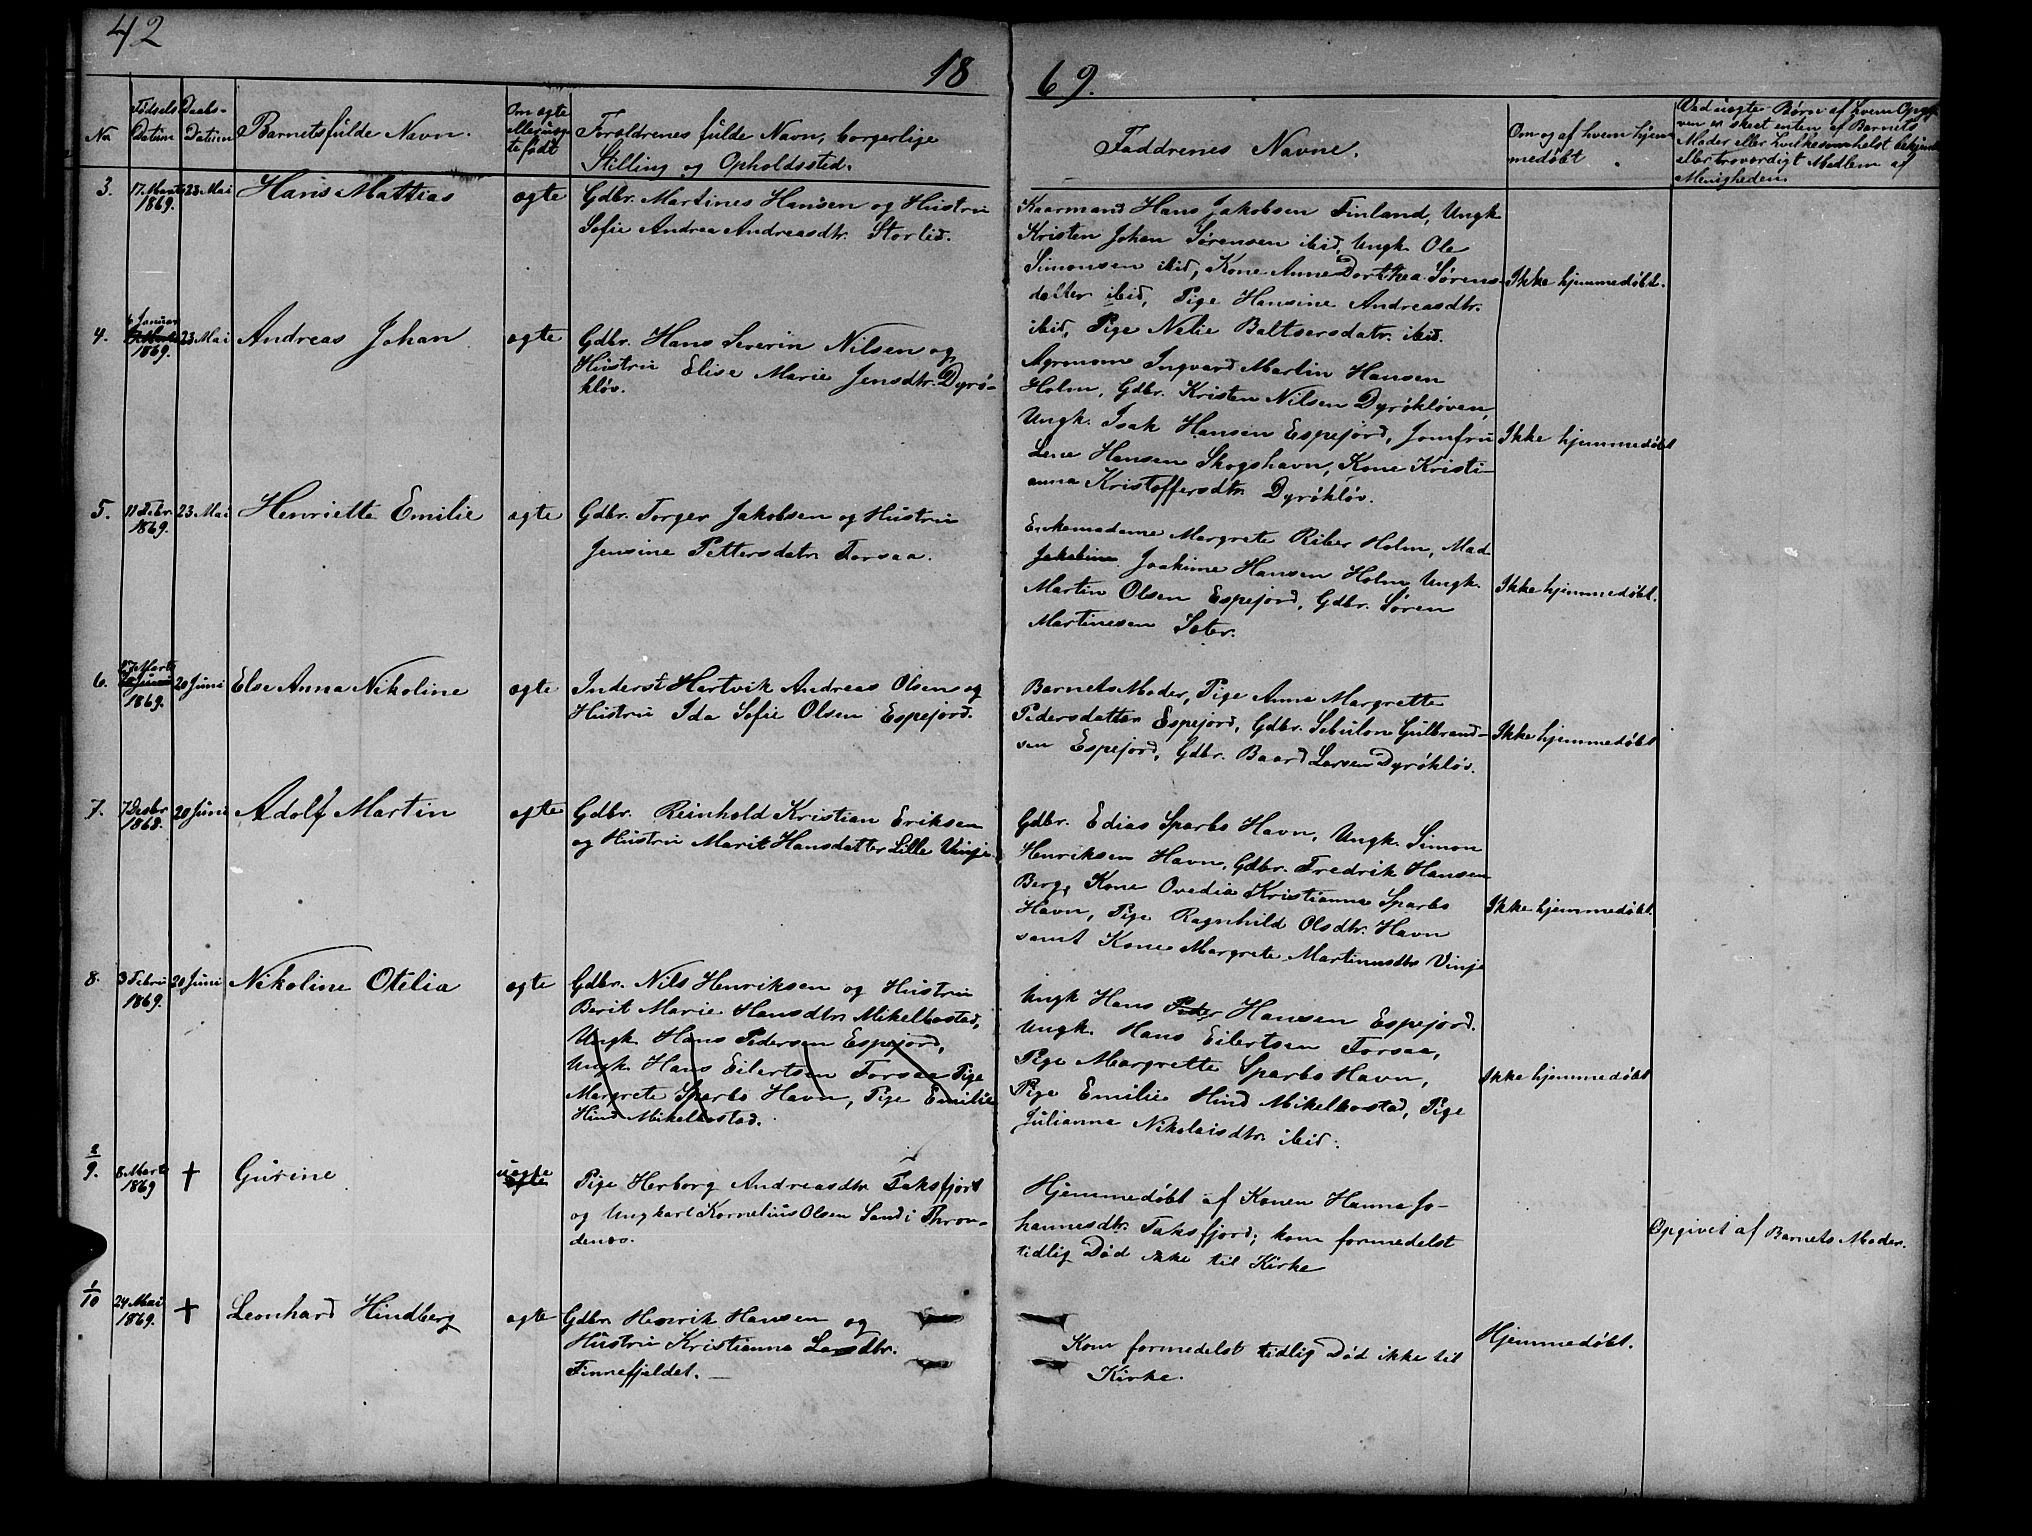 42
18 69.
No
Fødsels Datum
Daabs-Datum
Barnets fulde Navn.
Om ægte eller uægte født
Forældrenes fulde Navn, borgerlige
Stilling og Opholdssted.
Faddrenes Navne.
Om og af hvem hjemmedøbt
Ved uægte Børn af hvem Opgiven er skeet enten af Barnets
Moder eller hvilkesomhelst bekjendt
eller troværdigt Medlem af
Menigheden.
3. 17. Marts 1869. 23 Mai Hans Mattias ægte
Gdbr. Martines Hansen og Hustru
Sofie Andrea Andreasdtr. Storlid.
Kaarmand Hans Jakobsen Finland, Ungk
Kristen Johan Sørensen ibid, Ungk. Ole
Simonsen ibid, Kone Anne Dorthea Sørens-
datter ibid, Pige Hansine Andreasdtr.
ibid, Pige Nelie Baltsersdatr. ibid.
Ikke hjemmedøbt.
4. 6 Januar 1869. 23 Mai Andreas Johan ægte
Gdbr. Hans Severin Nilsen og
Hustru Elise Marie Jensdtr. Dyrø-
kløv.
Agronom Ingvard Martin Hansen
Holm, Gdbr. Kristen Nilsen Dyrøkløven,
Ungk. Isak Hansen Espejord, Jomfru
Lene Hansen Skogshavn, Kone Kristi-
anna Kristoffersdtr. Dyrøkløv.
Ikke hjemmedøbt
5. 11 Febr. 1869. 23 Mai Henriette Emilie ægte
Gdbr. Torger Jakobsen og Hustru
Jensine Pettersdatr. Forsaa.
Enkemadame Margrete Riber Holm, Mad
Jakobine Joakime Hansen Holm, Ungk.
Martin Olsen Espejord, Gdbr. Søren
Martinesen Sæter.
Ikke hjemmedøbt.
6. 17 Marts 1869. 20 Juni Else Anna Nikoline ægte
Inderst Hartvik Andreas Olsen og
Hustru Ida Sofie Olsen Espejord.
Barnets Moder, Pige Anne Margrette
Pedersdatter Espejord, Gdbr. Sebulon Gulbrand-
sen Espejord, Gdbr. Baard Larsen Dyrøkløv.
Ikke hjemmedøbt
7. 7 Desbr 1868. 20 Juni Adolf Martin ægte
Gdbr. Reinhold Kristian Eriksen
og Hustru Marit Hansdatter Lille Vinje
Gdbr. Edias Sparbo Havn, Ungk. Simon
Henriksen Havn, Gdbr. Fredrik Hansen
Berg, Kone Ovedia Kristianne Sparbo
Havn, Pige Ragnhild Olsdtr. Havn
samt Kone Margrete Martinusdtr Vinje
Ikke hjemmedøbt.
8. 3 Febru 1869. 20 Juni Nikoline Otelia ægte
Gdbr. Nils Henriksen og Hustru
Berit Marie Hansdtr. Mikelbostad,
Ungk. Hans Pedersen Espejord,
Ungk. Hans Eilertsen Forsaa Pige
Margrete Sparbo Havn, Pige Emilie
Hind Mikelbostad.
Ungk Hans Peder Hansen Espejord.
Ungk. Hans Eilertsen Forsaa,
Pige Margrette Sparbo Havn,
Pige Emilie Hind Mikelbostad, Pige
Julianna Nikolaisdtr. ibid.
Ikke hjemmedøbt
9. 8 Marts 1869 † Gurine uægte ægte
Pige Herborg Andreasdtr. Faksfjord
og Ungkarl Kornelius Olsen Sand i Thron-
denes.
Hjemmedøbt af Konen Hanna Jo-
hannesdtr. Faksfjord; kom formedelst
tidlig Død ikke til Kirke
Opgivet af Barnets Moder.
1/10 24 Mai 1869. † Leonhard Hindberg ægte
Gdbr. Henrik Hansen og
Hustru Kristianna Larsdtr.
Finnefjeldet. —
Kom formedelst tidlig Død ikke til
Kirke.
Hjemmedøbt.